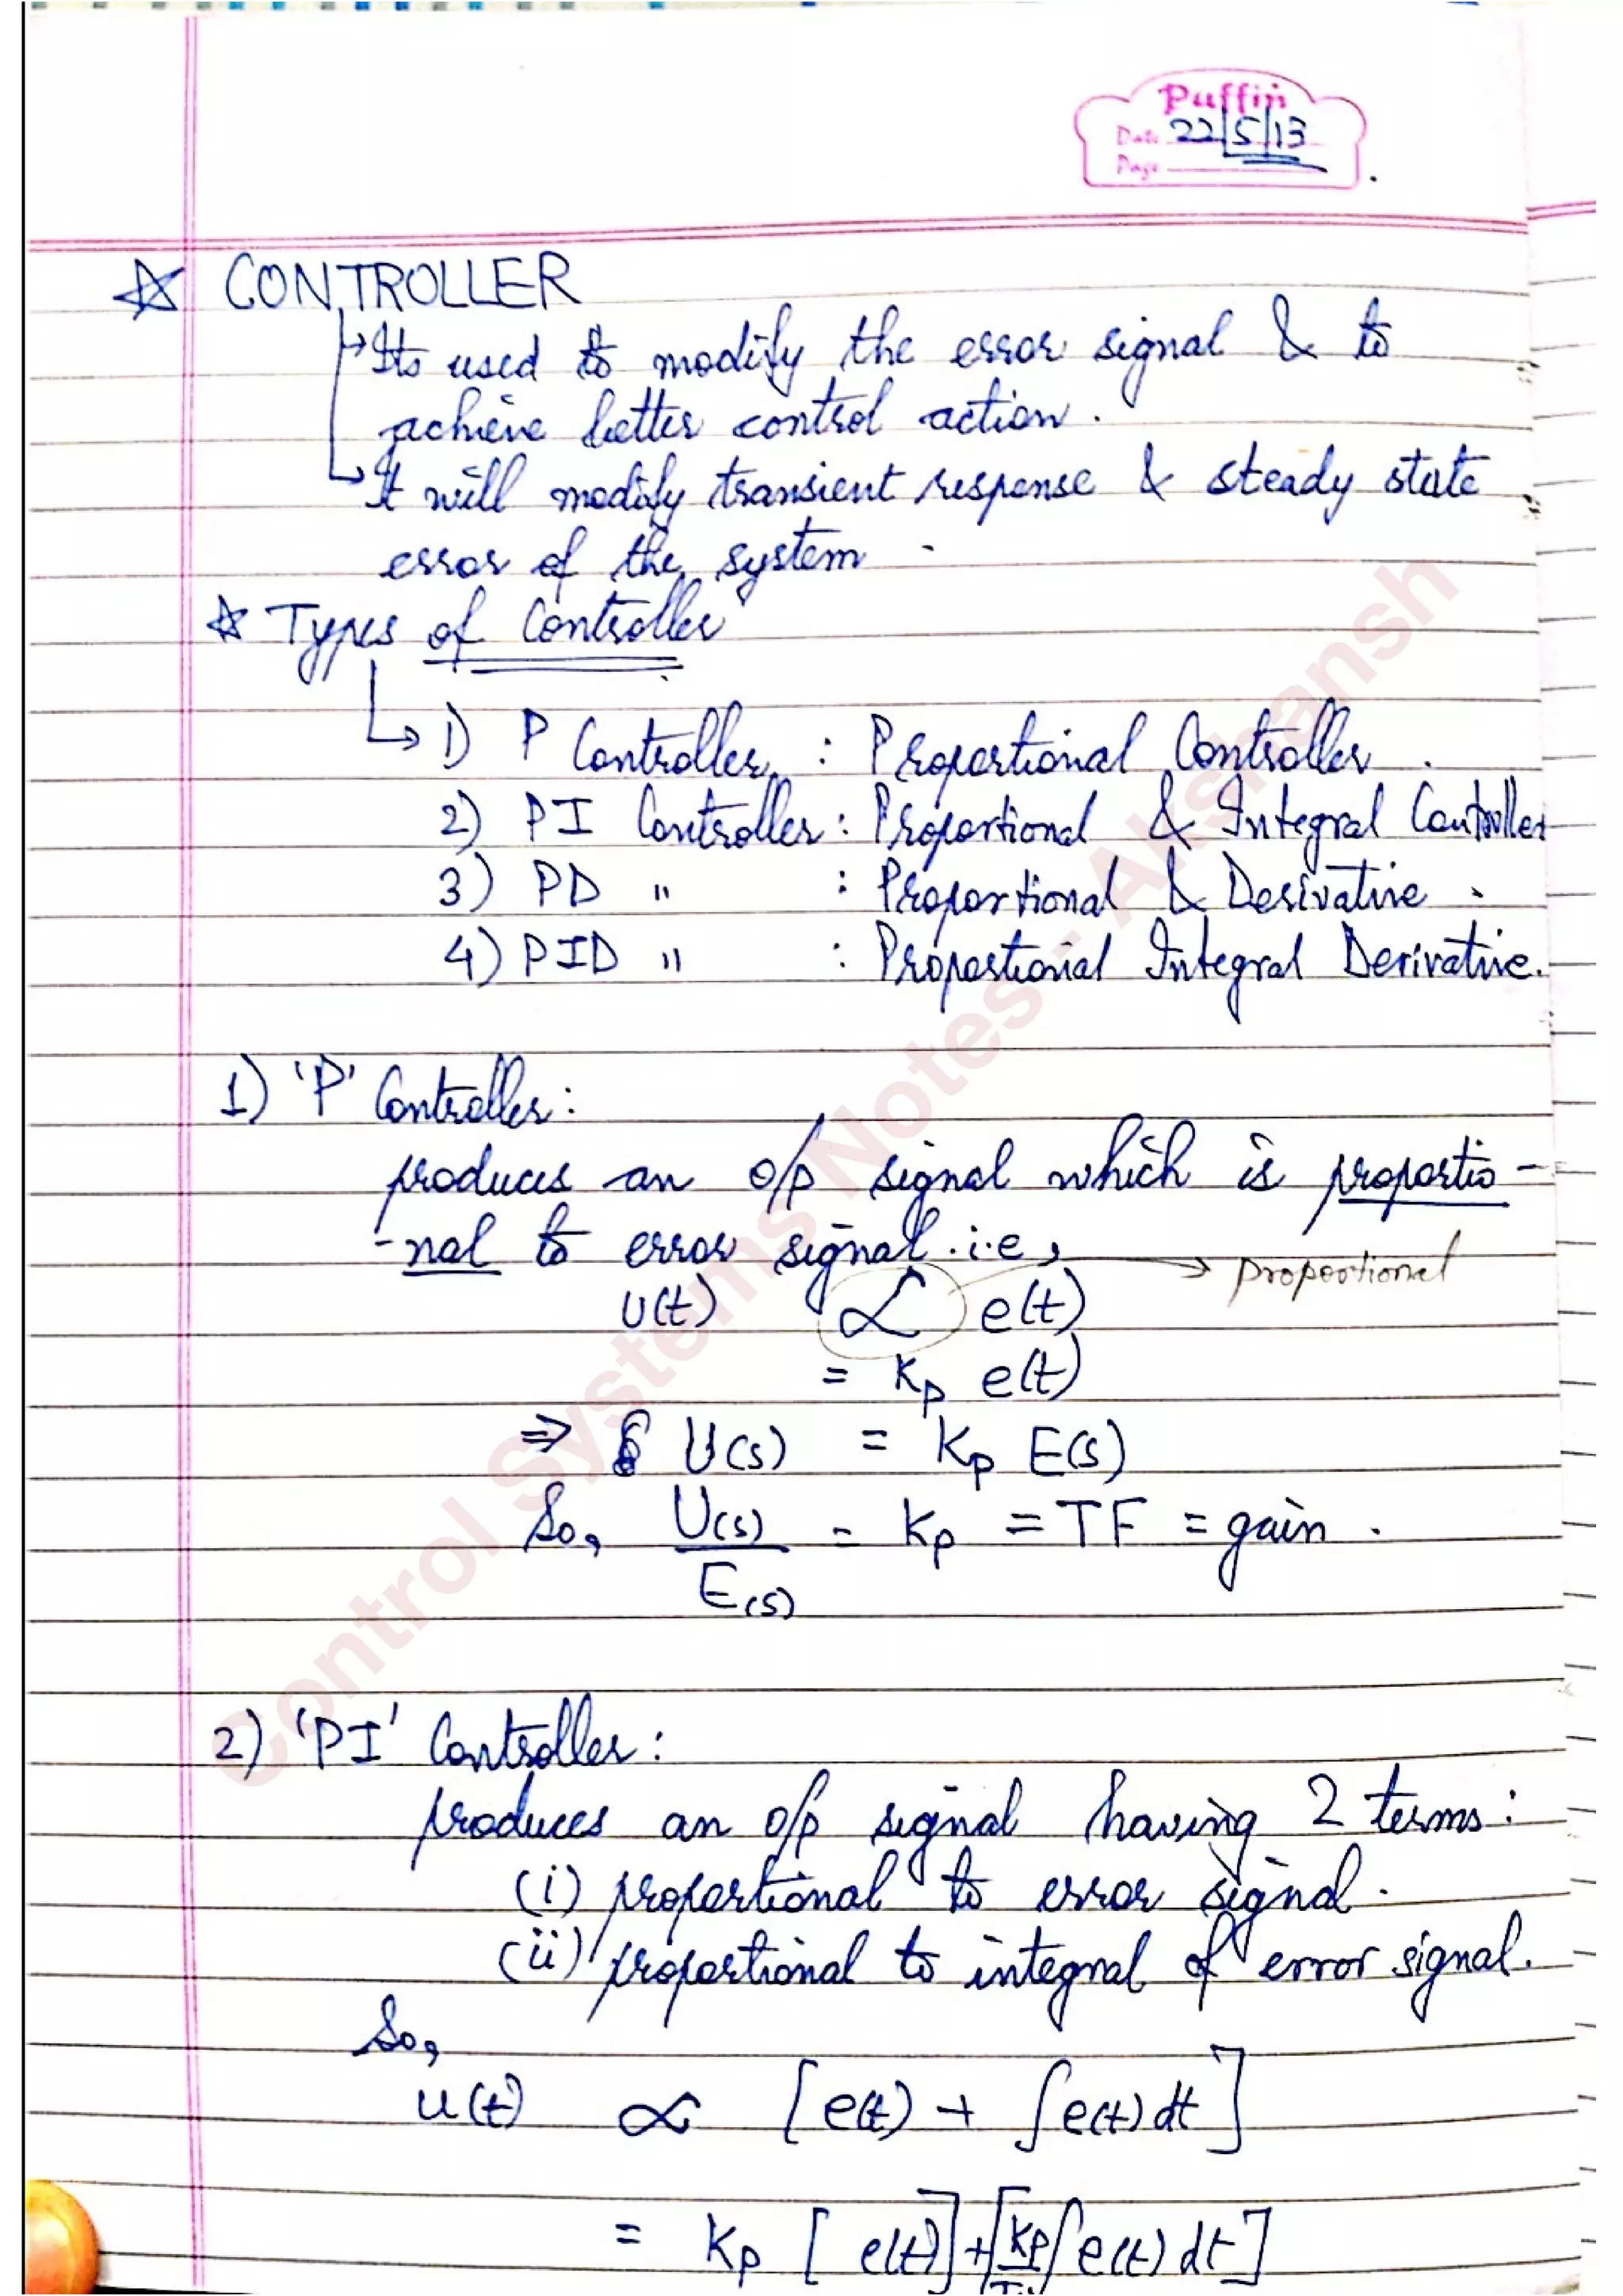 Puffin
Date 22/5/13
Page
☆ CONTROLLER
↳ Its used to modify the error signal & to
achieve better control action.
↳ It will modify transient response & steady state
error of the system.
☆ Types of Controller
↳ 1) P Controller : Proportional Controller.
2) PI Controller : Proportional & Integral Controller
3) PD " : Proportional & Derivative.
4) PID " : Proportional Integral Derivative.
1) 'P' Controller:
produces an o/p signal which is proportio-
-nal to error signal. i.e,
→ proportional
U(t) ∝ e(t)
= Kp e(t)
⇒ U(s) = Kp E(s)
So, U(s)/E(s) = Kp = TF = gain.
2) 'PI' Controller:
produces an o/p signal having 2 terms:
(i) proportional to error signal.
(ii) proportional to integral of error signal.
So,
u(t) ∝ [e(t) + ∫e(t) dt]
= Kp [e(t)] + [Kp/Ti ∫e(t) dt]
Control Systems Notes - Akshansh